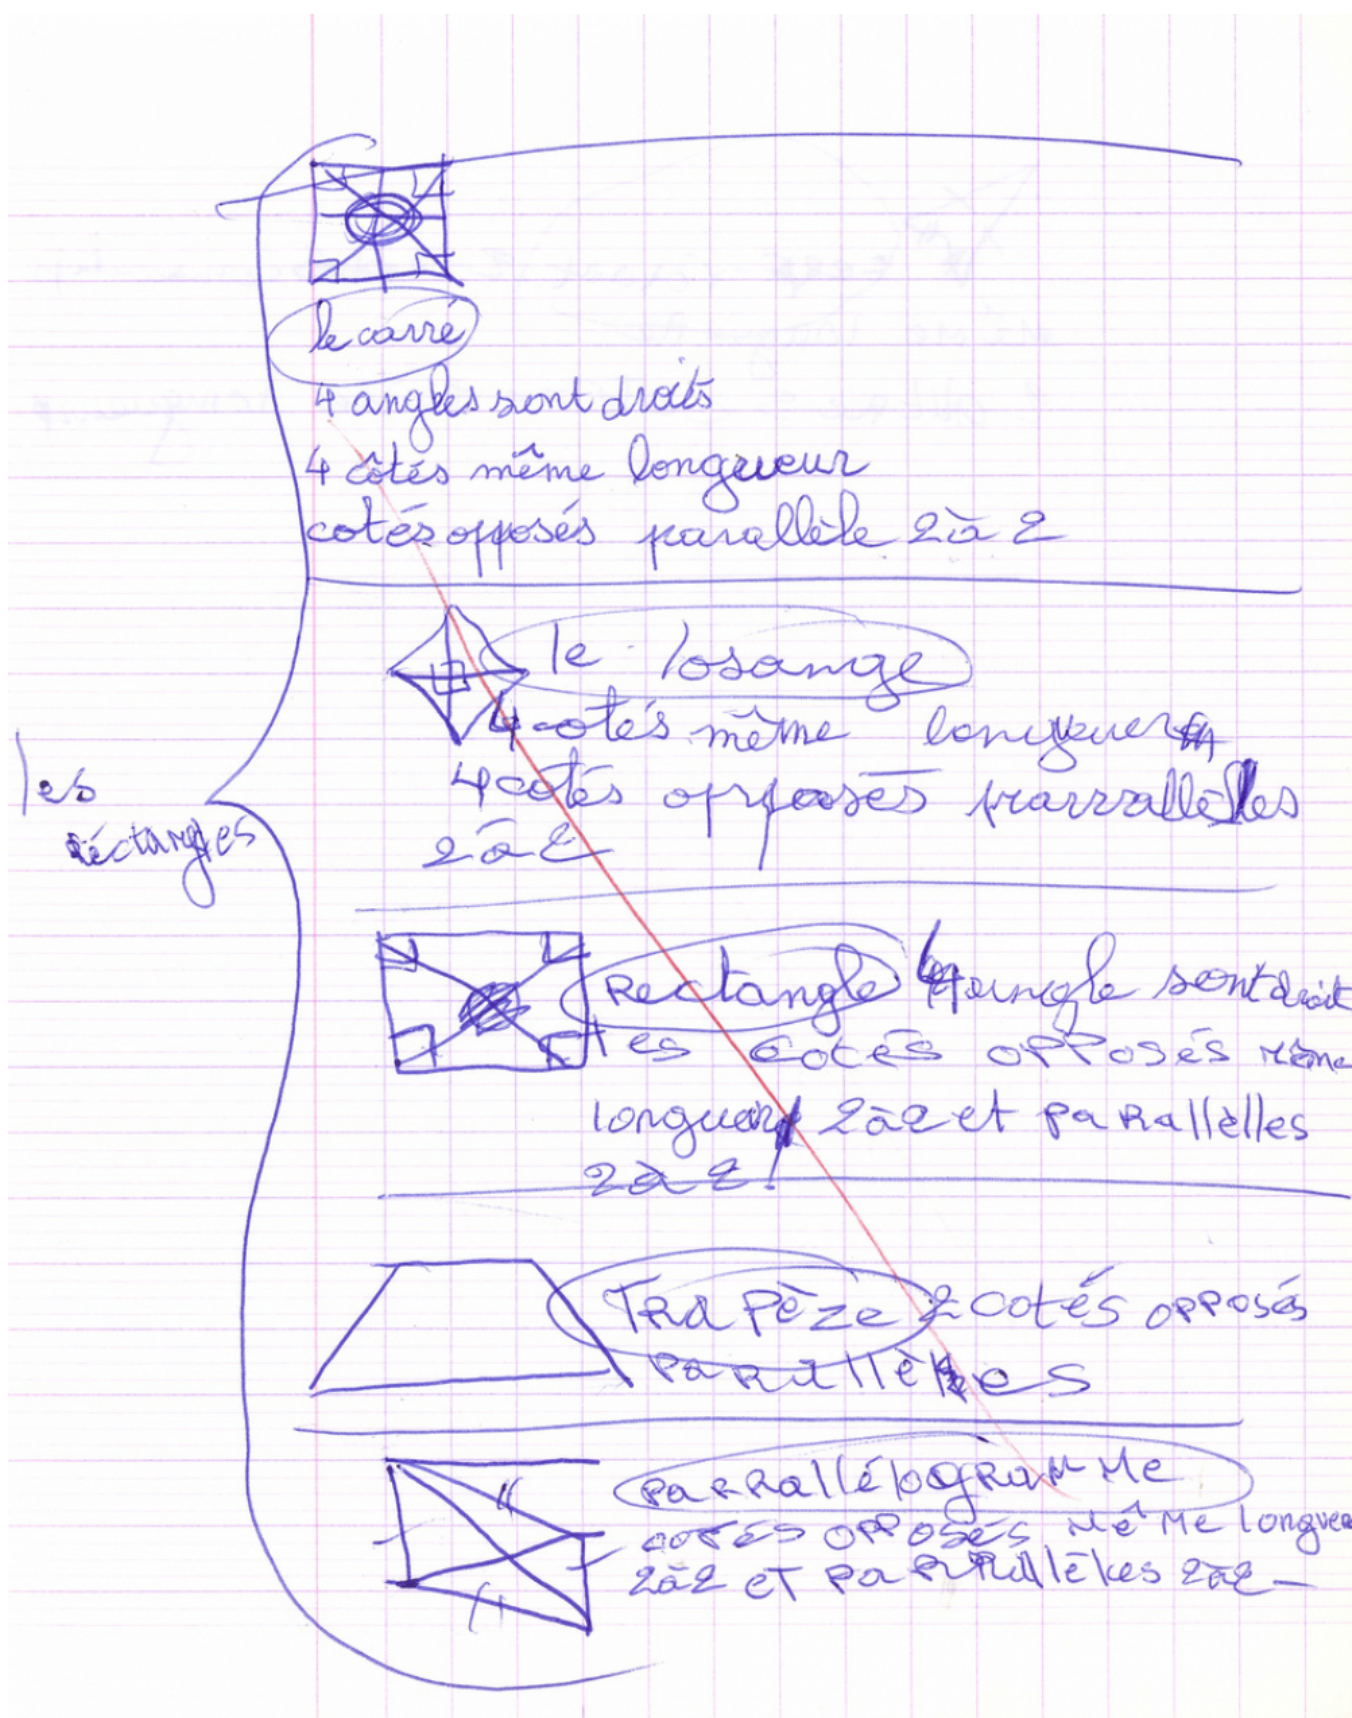 les
réctangles
le carré
4 angles sont droits
4 côtés même longueur
cotés opposés parallèle 2 à 2
le losange
4 cotés même longueur
4 cotés opposés parrallèlles
2 à 2
Rectangle 4 angle sont droit
les cotés opposés même
longueur 2 à 2 et parallèlles
2 à 2.
Trapèze 2 cotés opposés
parallèles
parrallélogramme
cotés opposés même longueur
2 à 2 et parrallèles 2 à 2